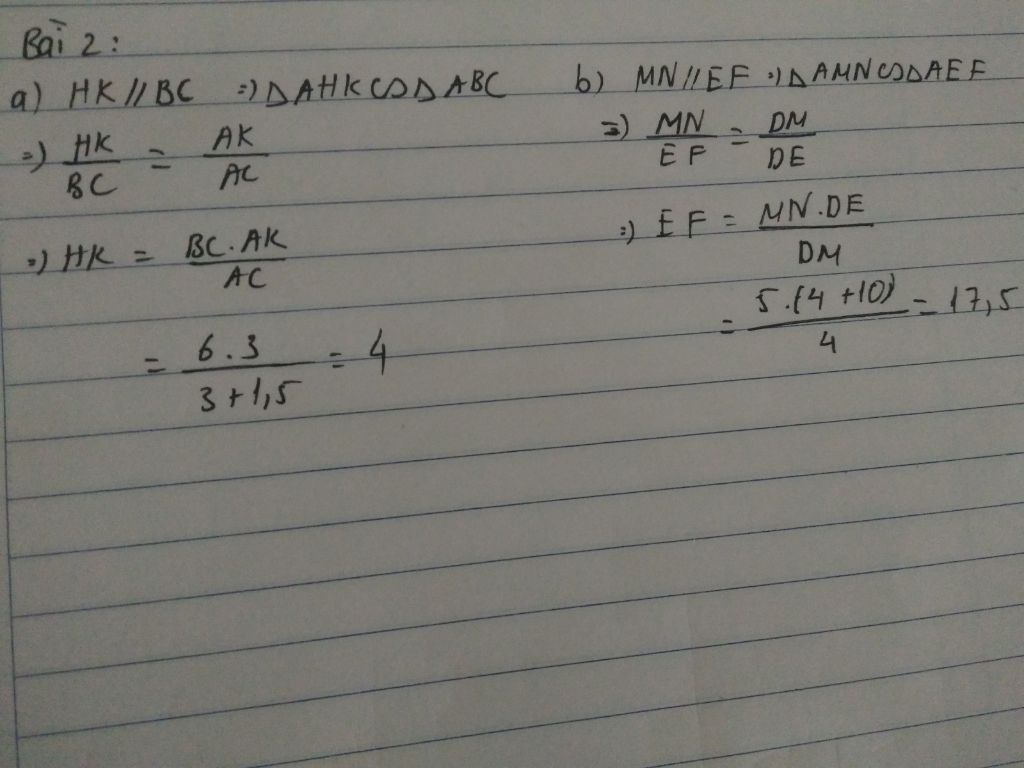 Bài 2:
a) HK//BC => ΔAHK ∽ ΔABC
=> HK/BC = AK/AC
=> HK = BC.AK/AC
= 6.3/3+1,5 = 4
b) MN//EF => ΔAMN ∽ ΔAEF
=> MN/EF = DM/DE
=> EF = MN.DE/DM
= 5.(4+10)/4 = 17,5